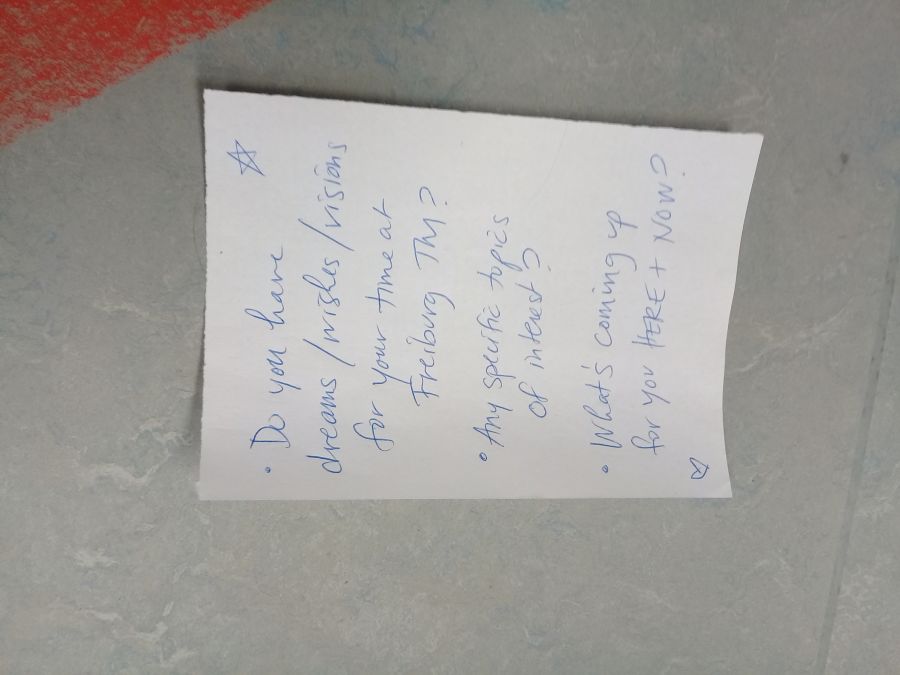 • Do you have
dreams/wishes/visions
for your time at
Freiburg TM?
• Any specific topics
of interest?
• What's coming up
for you HERE + NOW?